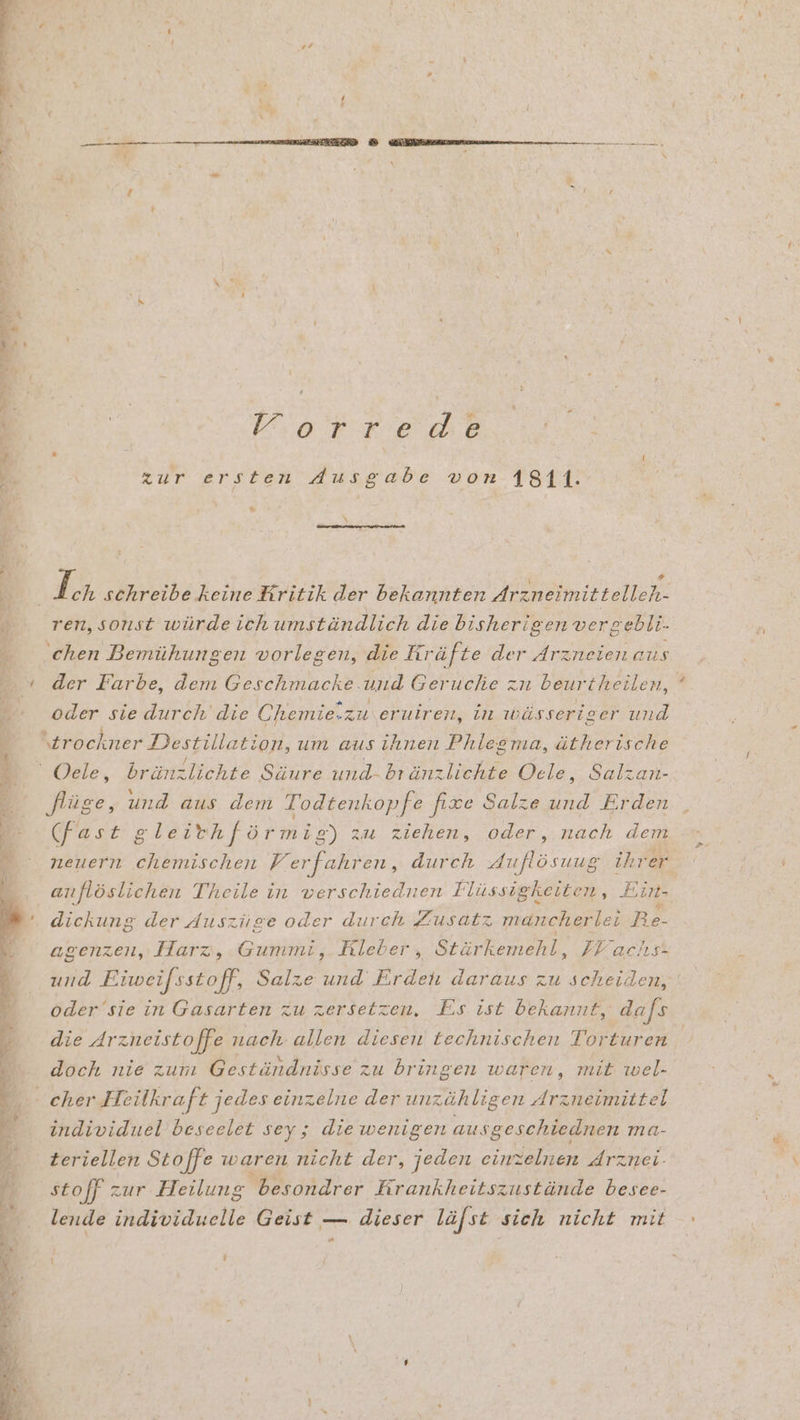 Vorrede
zur ersten Ausgabe von 1811.
Ich schreibe keine Kritik der bekannten Arzneimittelleh-
ren, sonst würde ich umständlich die bisherigen vergebli-
chen Bemühungen vorlegen, die Kräfte der Arzneien aus
der Farbe, dem Geschmacke und Geruche zu beurtheilen,
oder sie durch die Chemie zu eruiren, in wässeriger und
trockner Destillation, um aus ihnen Phlegma, ätherische
Oele, bränzlichte Säure und bränzlichte Oele, Salzan-
flüge, und aus dem Todtenkopfe fixe Salze und Erden
(fast gleichförmig) zu ziehen, oder, nach dem
neuern chemischen Verfahren, durch Auflösuug ihrer
auflöslichen Theile in verschiednen Flüssigkeiten, Ein-
dickung der Auszüge oder durch Zusatz mancherlei Re-
agenzen, Harz, Gummi, Kleber, Stärkemehl, Wachs-
und Eiweifsstoff, Salze und Erden daraus zu scheiden,
oder sie in Gasarten zu zersetzen. Es ist bekannt, dafs
die Arzneistoffe nach allen diesen technischen Torturen
doch nie zum Geständnisse zu bringen waren, mit wel-
cher Heilkraft jedes einzelne der unzähligen Arzneimittel
individuel beseelet sey; die wenigen ausgeschiednen ma-
teriellen Stoffe waren nicht der, jeden einzelnen Arznei-
stoff zur Heilung besondrer Krankheitszustände besee-
lende individuelle Geist — dieser läfst sich nicht mit